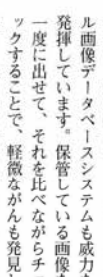 ル画像データベースシステムも威力
発揮しています。保管している画像
一度に出せて、それを比べながらチ
ックすることで、軽微ながんも発見